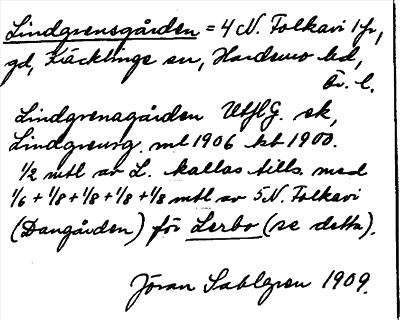 Lindgrensgården = 4 N. Folkavi 1 fr,
gd, Kräcklinge sn, Hardemo hd,
Ör. l.
Lindgrenagården Utfl G. ek,
Lindgrensg. ml 1906 kt 1900.
1/2 mtl av L. kallas tills. med
1/6 + 1/8 + 1/8 + 1/8 + 1/8 mtl av 5 N. Folkavi
(Dangården) för Lerbo (se detta).
Jöran Sahlgren 1909.